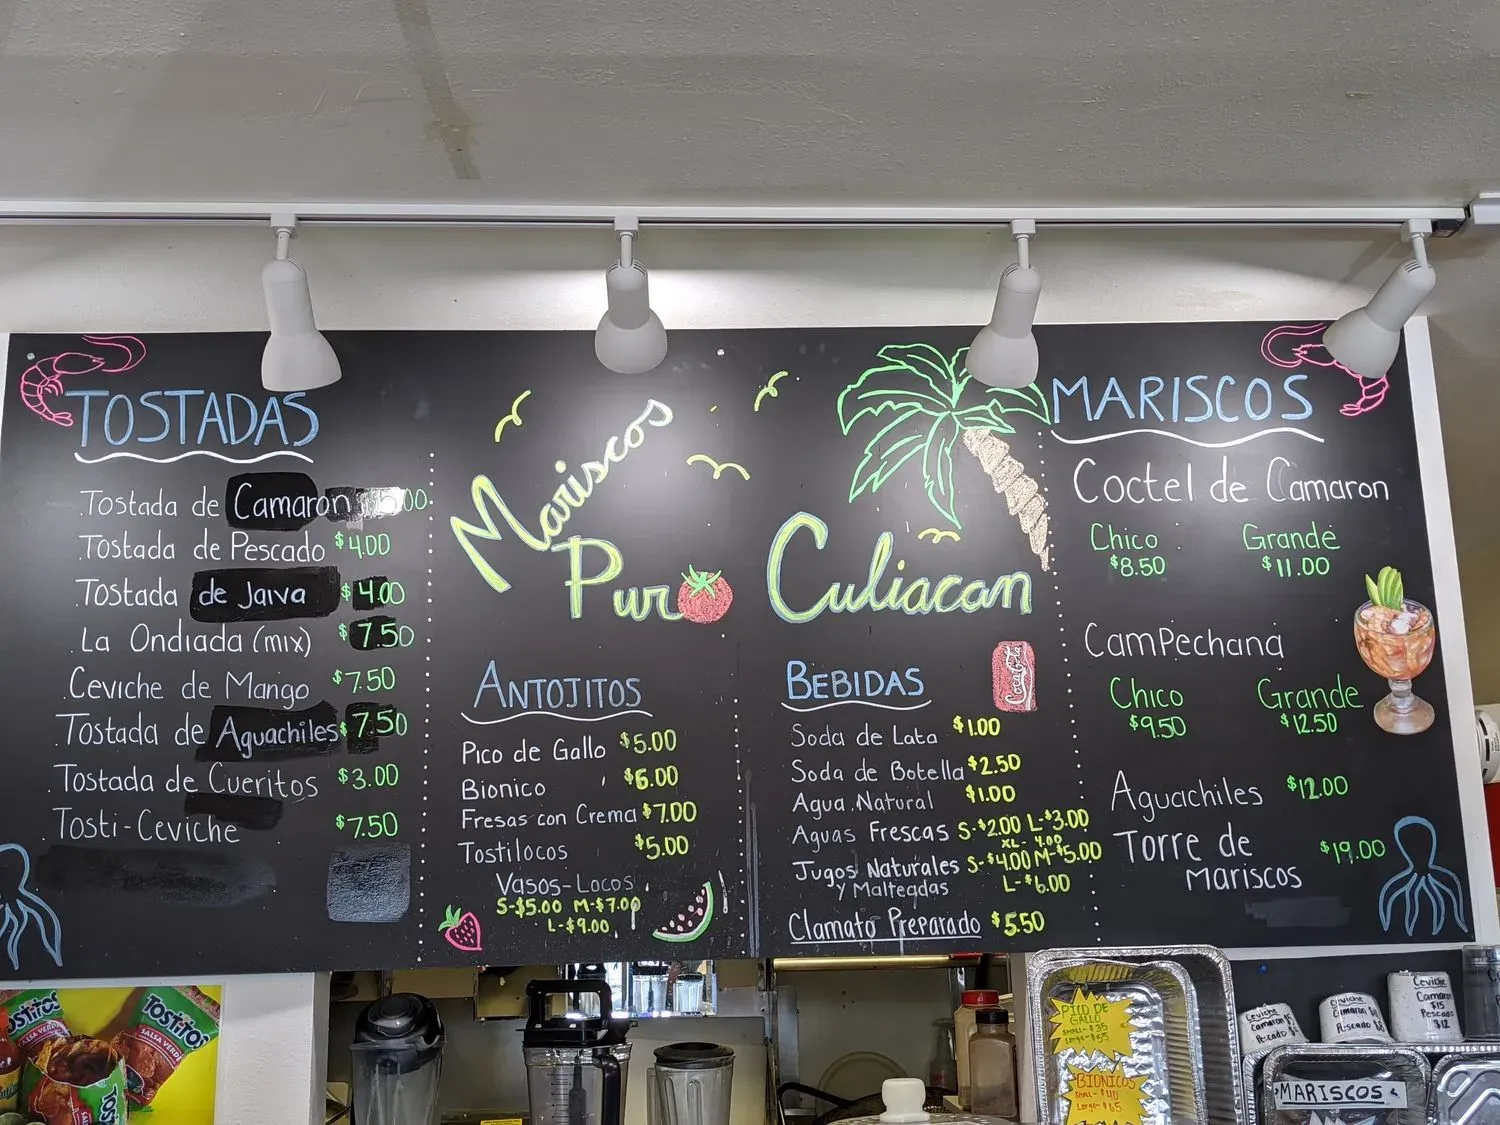 TOSTADAS
.Tostada de Camaron
.Tostada de Pescado $4.00
.Tostada de Jaiva $4.00
.La Ondiada (mix) $7.50
.Ceviche de Mango $7.50
.Tostada de Aguachiles $7.50
.Tostada de Cueritos $3.00
.Tosti-Ceviche $7.50
Mariscos
Puro
Culiacan
ANTOJITOS
Pico de Gallo $5.00
Bionico $6.00
Fresas con Crema $7.00
Tostilocos $5.00
Vasos-Locos
S-$5.00 M-$7.00
L-$9.00
BEBIDAS
Coca-Cola
Soda de Lata $1.00
Soda de Botella $2.50
Agua Natural $1.00
Aguas Frescas S-$2.00 L-$3.00
XL- 4.00
Jugos Naturales S-$4.00 M-$5.00
y Malteadas L-$6.00
Clamato Preparado $5.50
MARISCOS
Coctel de Camaron
Chico Grande
$8.50 $11.00
CamPechana
Chico Grande
$9.50 $12.50
Aguachiles $12.00
Torre de $19.00
Mariscos
Tostitos
SALSA VERDE
Tostitos
SALSA VERDE
PICO DE
GALLO
SMALL-$35
Large-$55
BIONICOS
SMALL-$40
Large-$65
Ceviche
Camaron
Pescado
Ceviche
Camaron
Pescado
Ceviche
Camaron
$15
Pescado
$12
MARISCOS